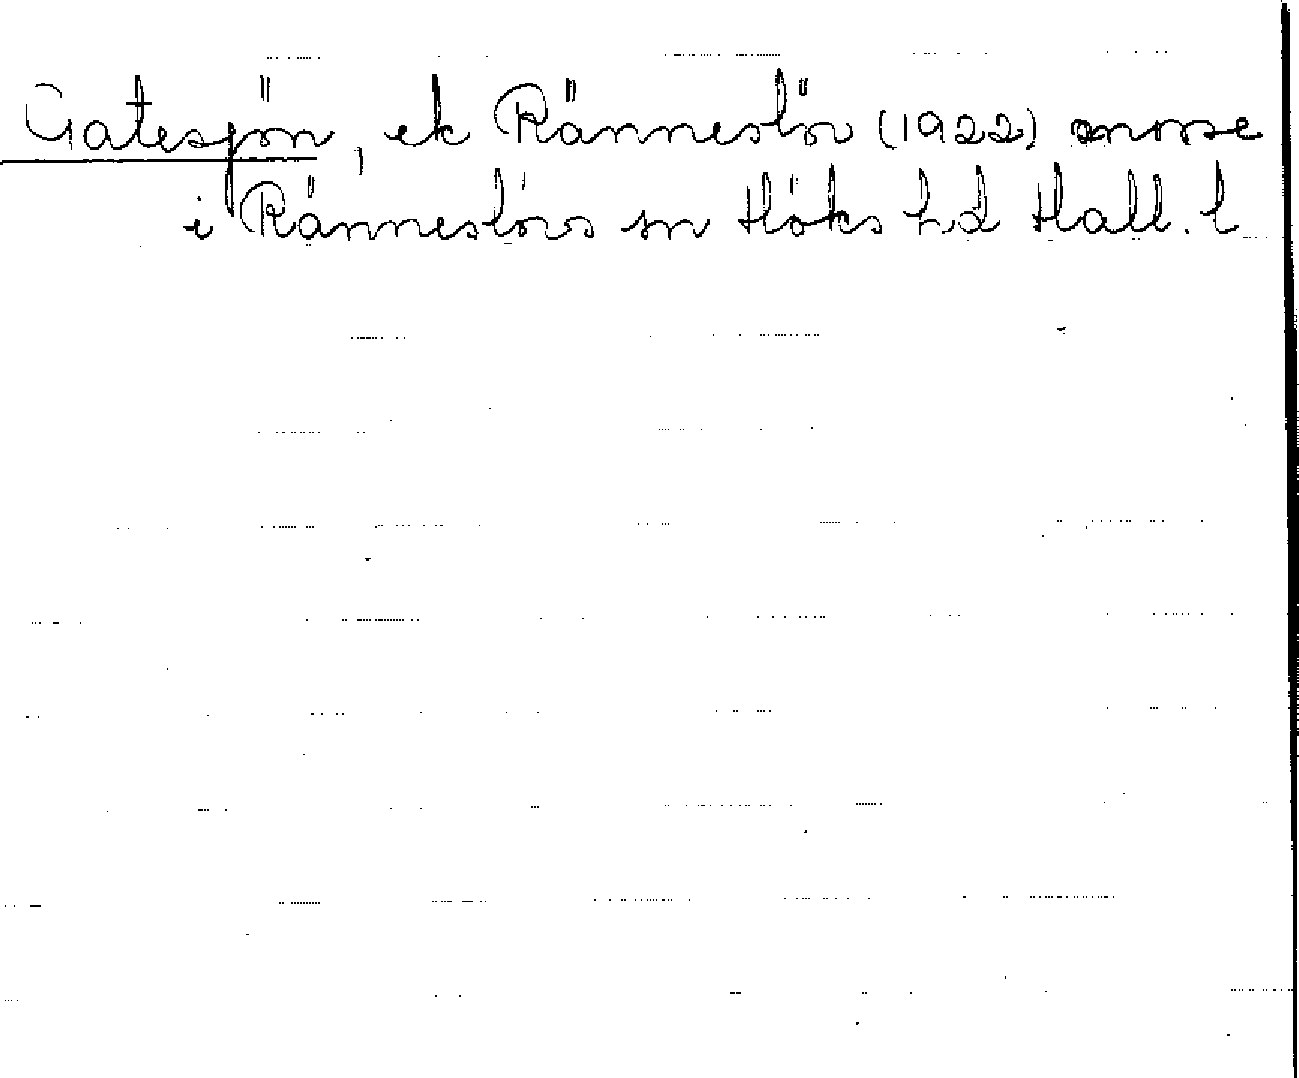 Gatesjön, ek Ränneslöv (1922) mosse
i Ränneslövs sn Höks hd Hall. l